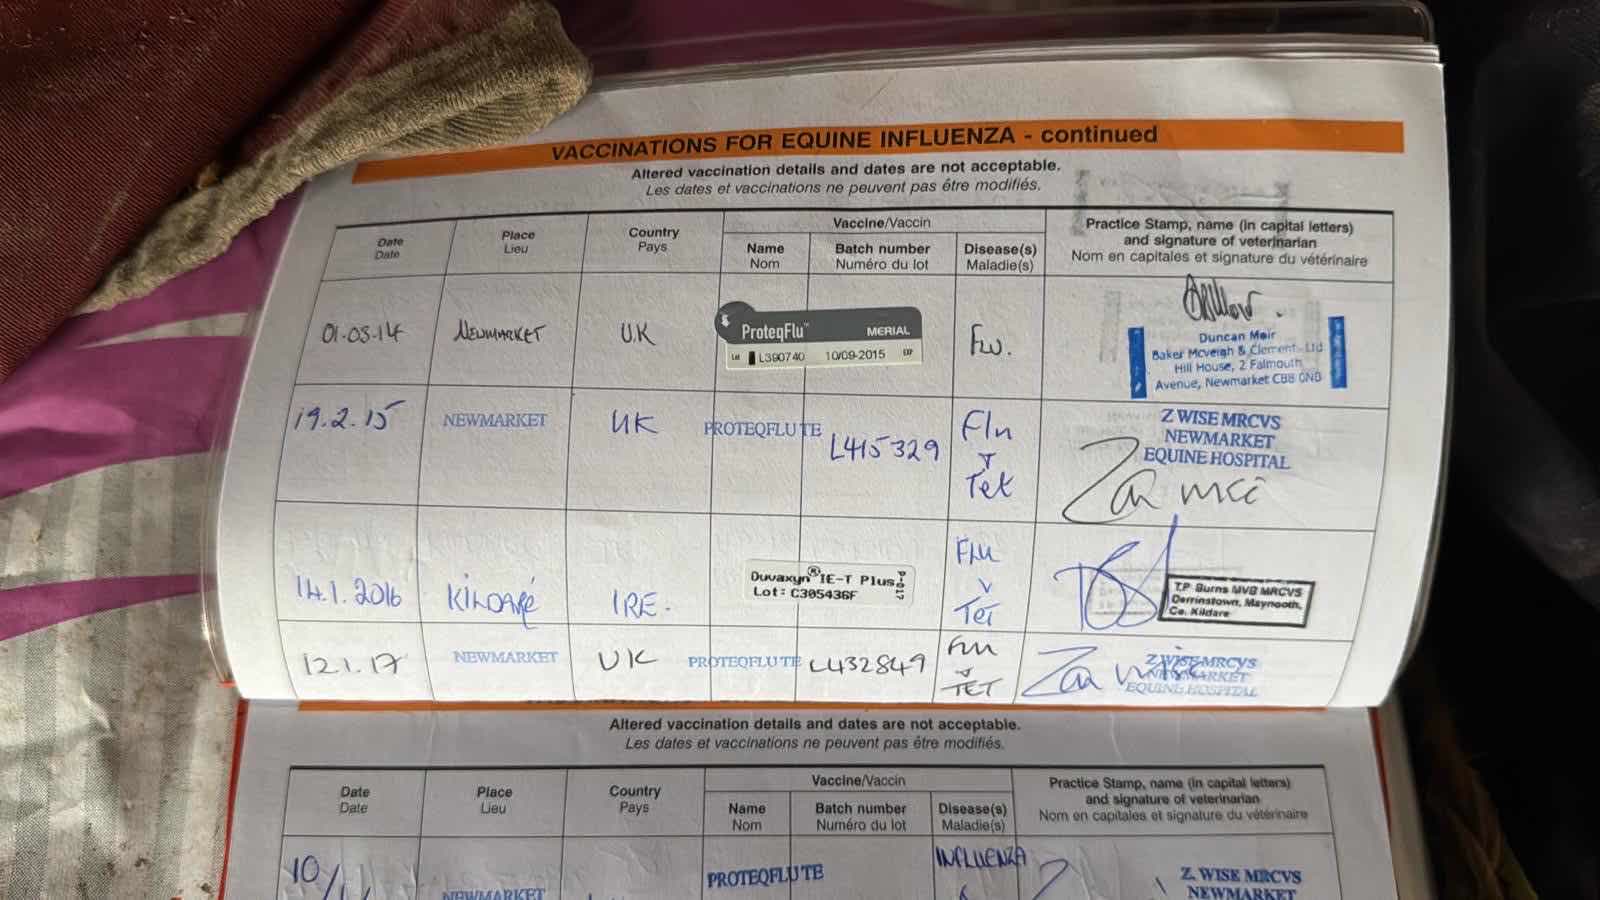 VACCINATIONS FOR EQUINE INFLUENZA - continued
Altered vaccination details and dates are not acceptable.
Les dates et vaccinations ne peuvent pas être modifiés.
Date
Date
Place
Lieu
Country
Pays
Vaccine/Vaccin
Name
Nom
Batch number
Numéro du lot
Disease(s)
Maladie(s)
Practice Stamp, name (in capital letters)
and signature of veterinarian
Nom en capitales et signature du vétérinaire
01.03.14
NEWMARKET
U.K
ProteqFlu™ MERIAL
Lot L390740 10/09-2015 EXP
FLU.
Duncan Moir
Baker Mcveigh & Clement Ltd
Hill House, 2 Falmouth
Avenue, Newmarket CB8 0NB
19.2.15
NEWMARKET
UK
PROTEQFLU TE
L415329
Flu
+
Tet
Z WISE MRCVS
NEWMARKET
EQUINE HOSPITAL
14.1.2016
KILDARE
IRE.
Duvaxyn® IE-T Plus
Lot: C305436F
FLU
+
TET
T.P Burns MVB MRCVS
Derrinstown, Maynooth,
Co. Kildare
12.1.17
NEWMARKET
UK
PROTEQFLU TE
L432849
FLU
+
TET
Z WISE MRCVS
NEWMARKET
EQUINE HOSPITAL
Altered vaccination details and dates are not acceptable.
Les dates et vaccinations ne peuvent pas être modifiés.
Date
Date
Place
Lieu
Country
Pays
Vaccine/Vaccin
Name
Nom
Batch number
Numéro du lot
Disease(s)
Maladie(s)
Practice Stamp, name (in capital letters)
and signature of veterinarian
Nom en capitales et signature du vétérinaire
10/
NEWMARKET
PROTEQFLU TE
INFLUENZA
Z WISE MRCVS
NEWMARKET